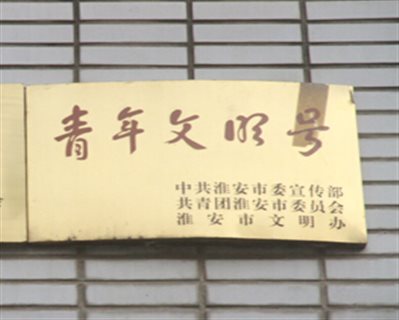 青年文明号
中共淮安市委宣传部
共青团淮安市委员会
淮安市文明办